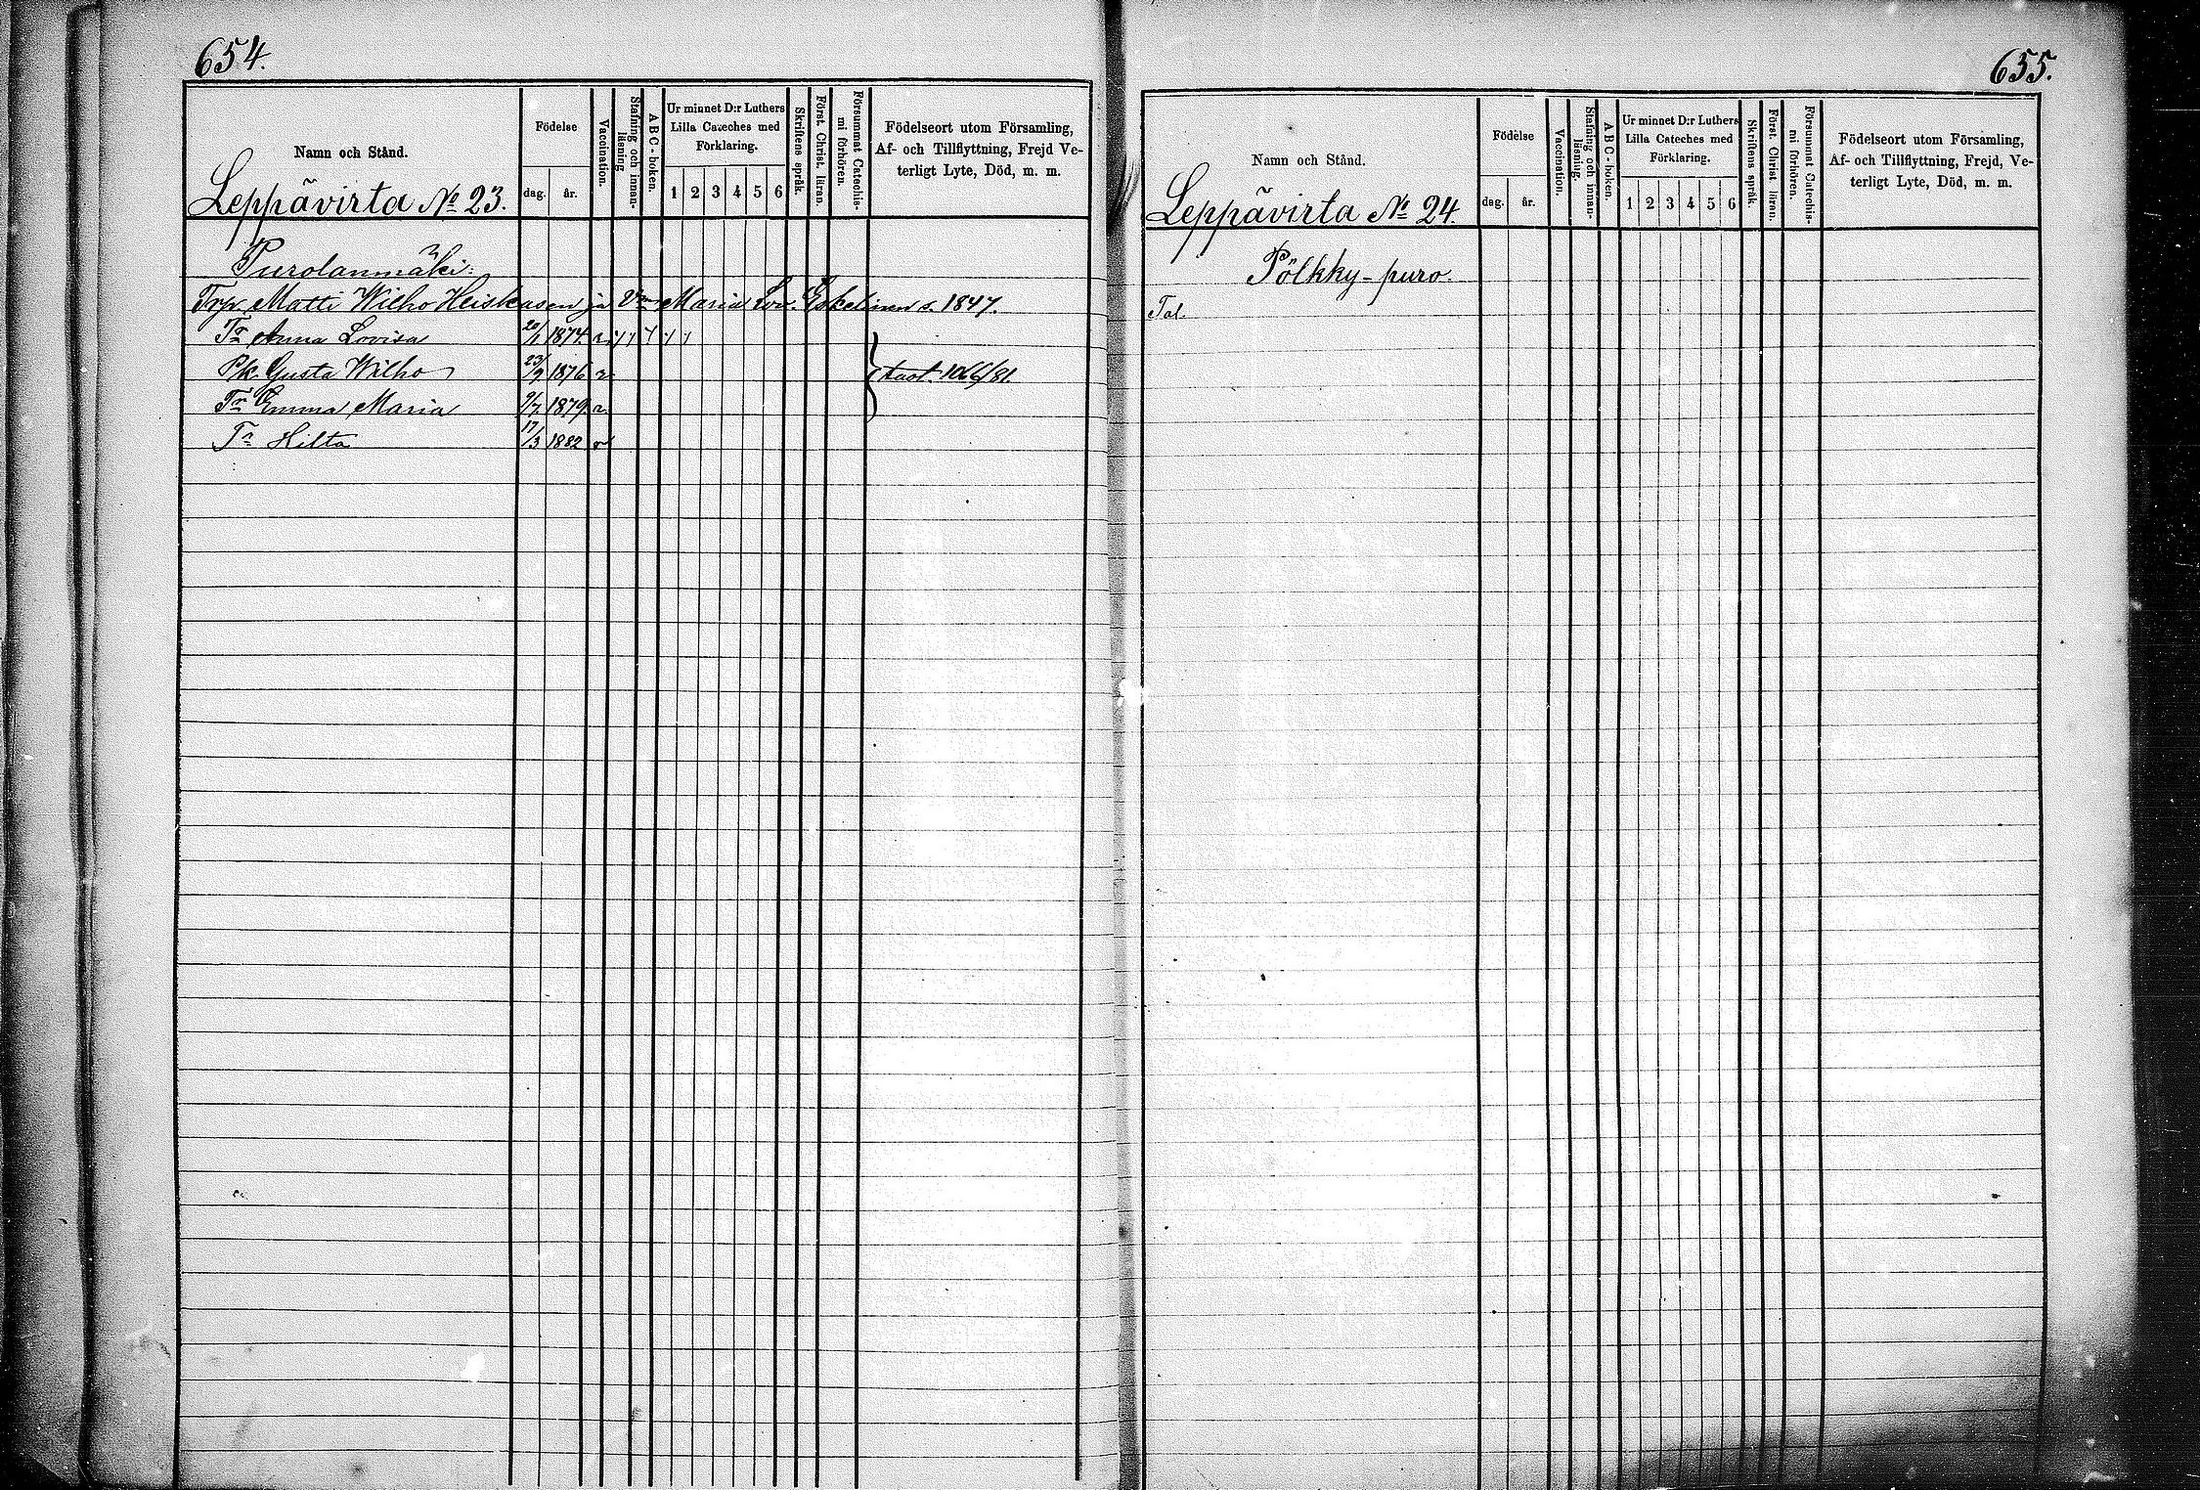 654.
Namn och Stånd.
Leppävirta № 23.
Födelse
dag. år.
Vaccination.
Stafning och innan-
läsning
ABC-boken.
Ur minnet D:r Luthers
Lilla Cateches med
Förklaring.
1 2 3 4 5 6
Skriftens språk.
Först. Christ. läran.
Försummat Catechis-
mi förhören.
Födelseort utom Församling,
Af- och Tillflyttning, Frejd Ve-
terligt Lyte, Död, m. m.
Purolanmäki:
Matti Wilho Heiskasen ja Maria Lov. Eskelinen s. 1847.
Tr Anna Lovisa 20/1 1874
Pk. Gusta Wilho 23/9 1876 1066/81.
Tr Emma Maria 9/7 1879
Tr Hilta 17/3 1882
655.
Namn och Stånd.
Leppävirta № 24.
Födelse
dag. år.
Vaccination.
Stafning och innan-
läsning.
ABC-boken.
Ur minnet D:r Luthers
Lilla Cateches med
Förklaring.
1 2 3 4 5 6
Skriftens språk
Först. Christ. läran.
Försummat Catechis-
mi förhören.
Födelseort utom Församling,
Af- och Tillflyttning, Frejd, Ve-
terligt Lyte, Död, m. m.
Pölkky-puro.
Tal.